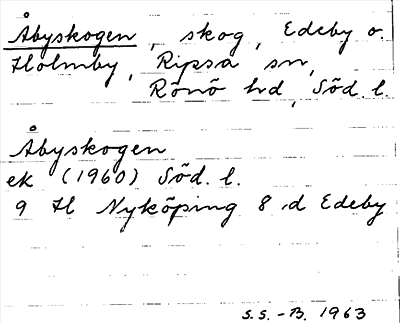 Åbyskogen, skog, Edeby o.
Holmby, Ripsa sn,
Rönö hd, Söd. l.
Åbyskogen
ek (1960) Söd. l.
9 H Nyköping 8 d Edeby
S.S. - B. 1963